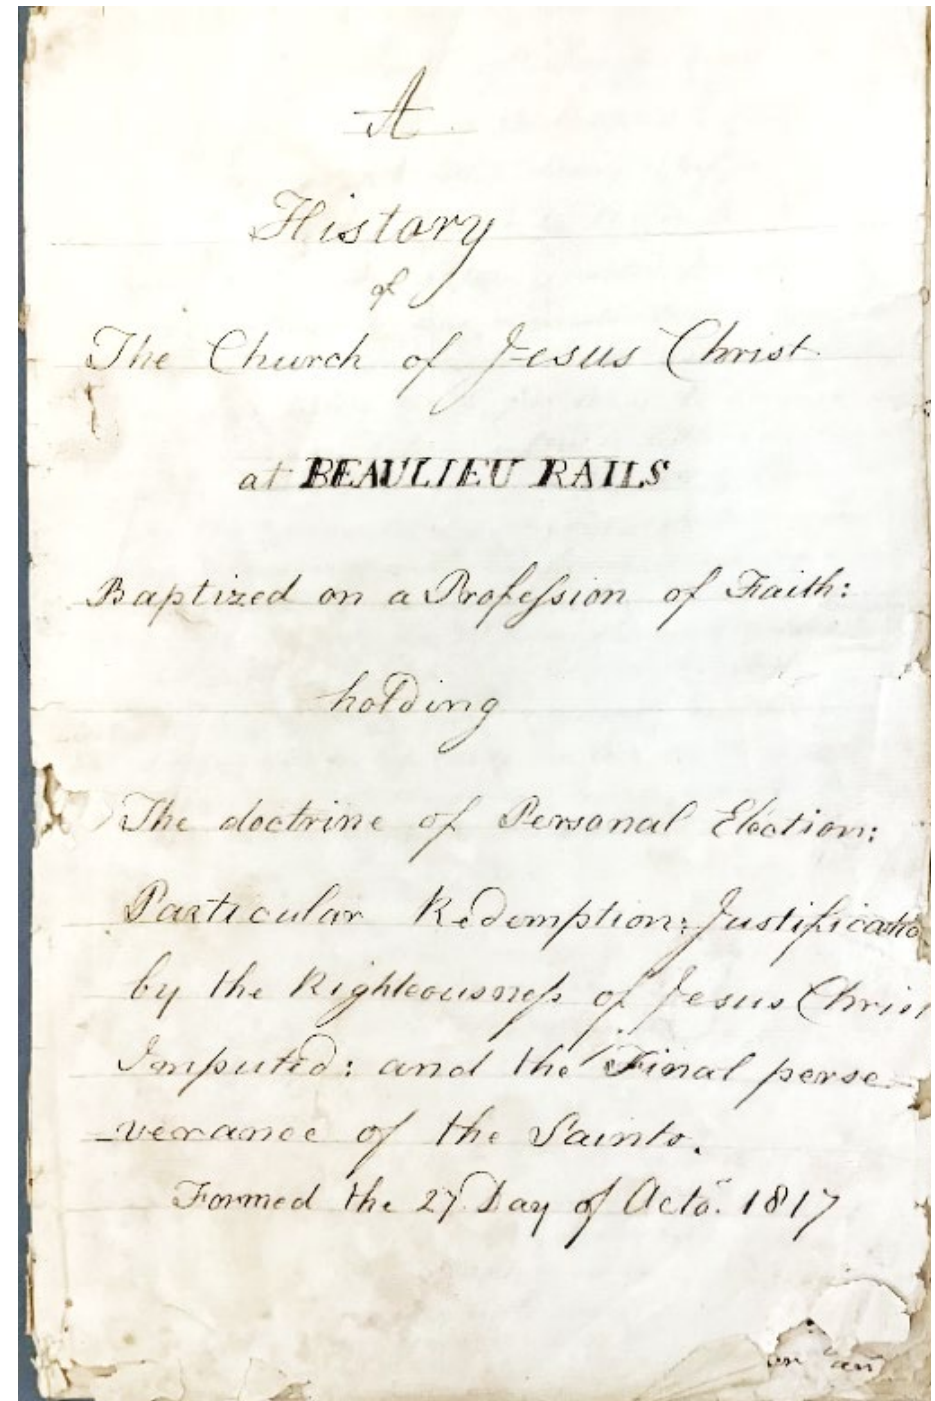 A
History
of
The Church of Jesus Christ
at BEAULIEU RAILS
Baptized on a Profeſsion of Faith:
holding
The doctrine of Personal Election:
Particular Redemption: Justificatio
by the Righteousneſs of Jesus Chris
Imputed: and the Final perse
-verance of the Saints.
Formed the 27 Day of Octo.r 1817